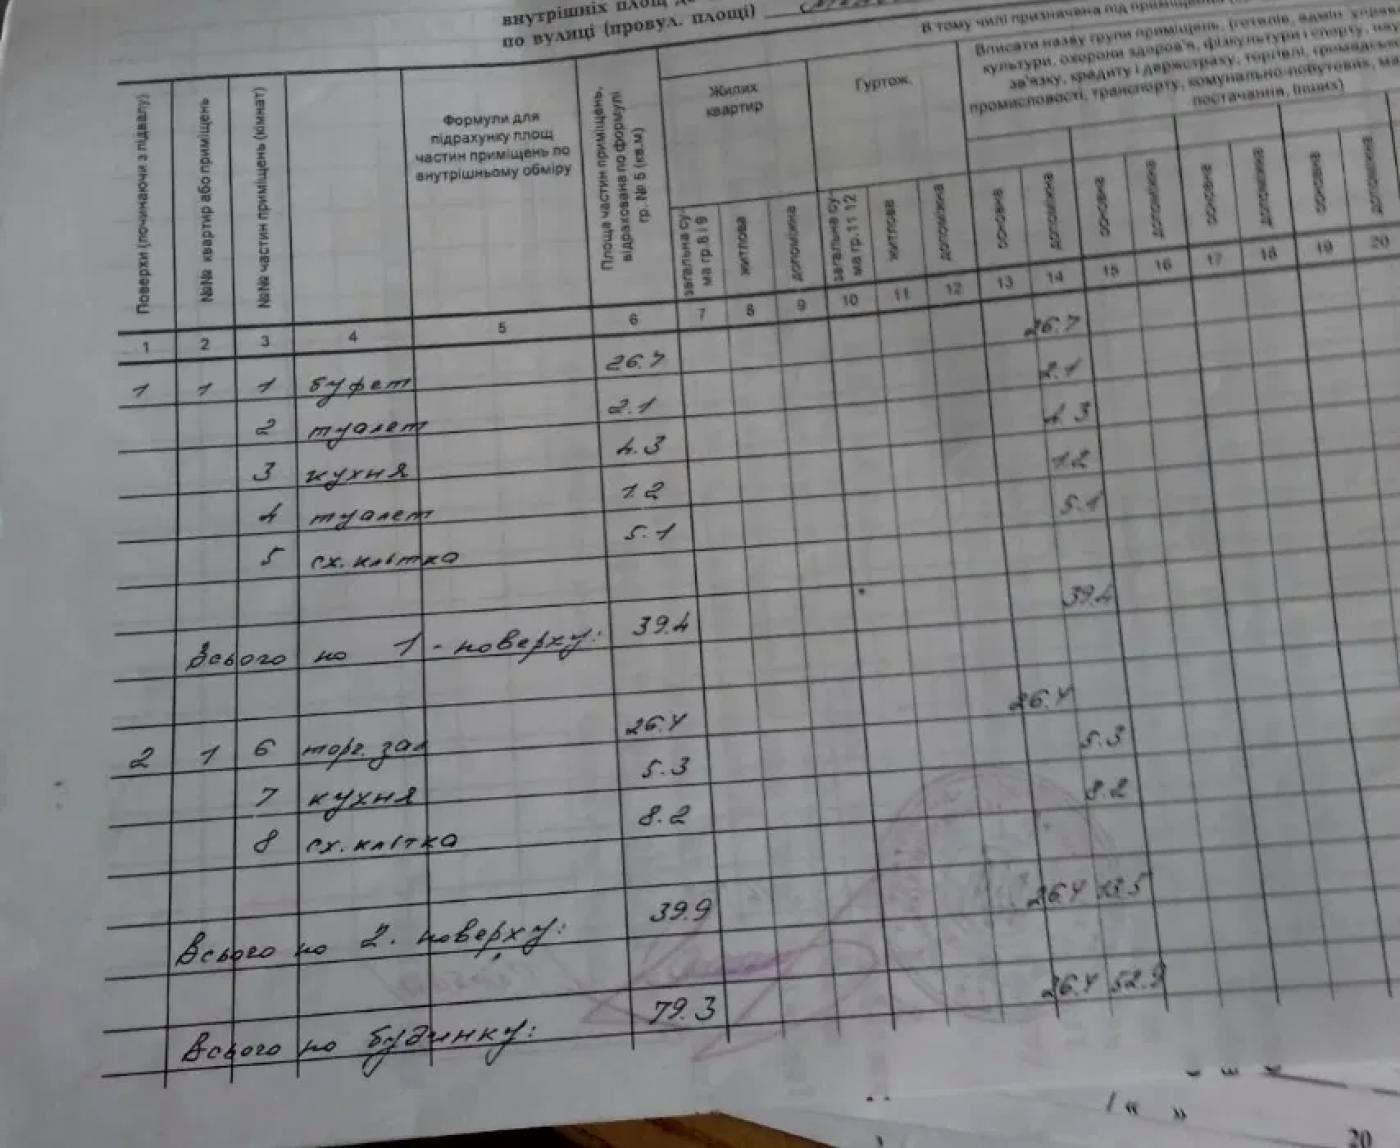 внутрішніх площ
по вулиці (провул. площі)
В тому числі призначена під приміщення
Вписати назву групи приміщень, (готелів, адмін. управ
культури, охорони здоров'я, фізкультури і спорту, нау
зв'язку, кредиту і держстраху, торгівлі, громадсько
промисловості, транспорту, комунально-побутових, ма
постачання, інших)
Поверхи (починаючи з підвалу)
№№ квартир або приміщень
№№ частин приміщень (кімнат)
Формули для
підрахунку площ
частин приміщень по
внутрішньому обміру
Площа частин приміщень,
відрахована по формулі
гр. № 5 (кв.м)
Жилих
квартир
Гуртож.
загальна су-
ма гр.8 і 9
житлова
допоміжна
загальна су-
ма гр.11 12
житлова
допоміжна
основна
допоміжна
основна
допоміжна
основна
допоміжна
основна
допоміжна
1 2 3 4 5 6 7 8 9 10 11 12 13 14 15 16 17 18 19 20
1 1 1 буфет 26.7 26.7
2 туалет 2.1 2.1
3 кухня 4.3 4.3
4 туалет 1.2 1.2
5 сх.клітка 5.1 5.1
Всього по 1 - поверху: 39.4 39.4
2 1 6 торг.зал 26.4 26.4
7 кухня 5.3 5.3
8 сх.клітка 8.2 8.2
Всього по 2. поверху: 39.9 26.4 13.5
Всього по будинку: 79.3 26.4 52.9
« »
20